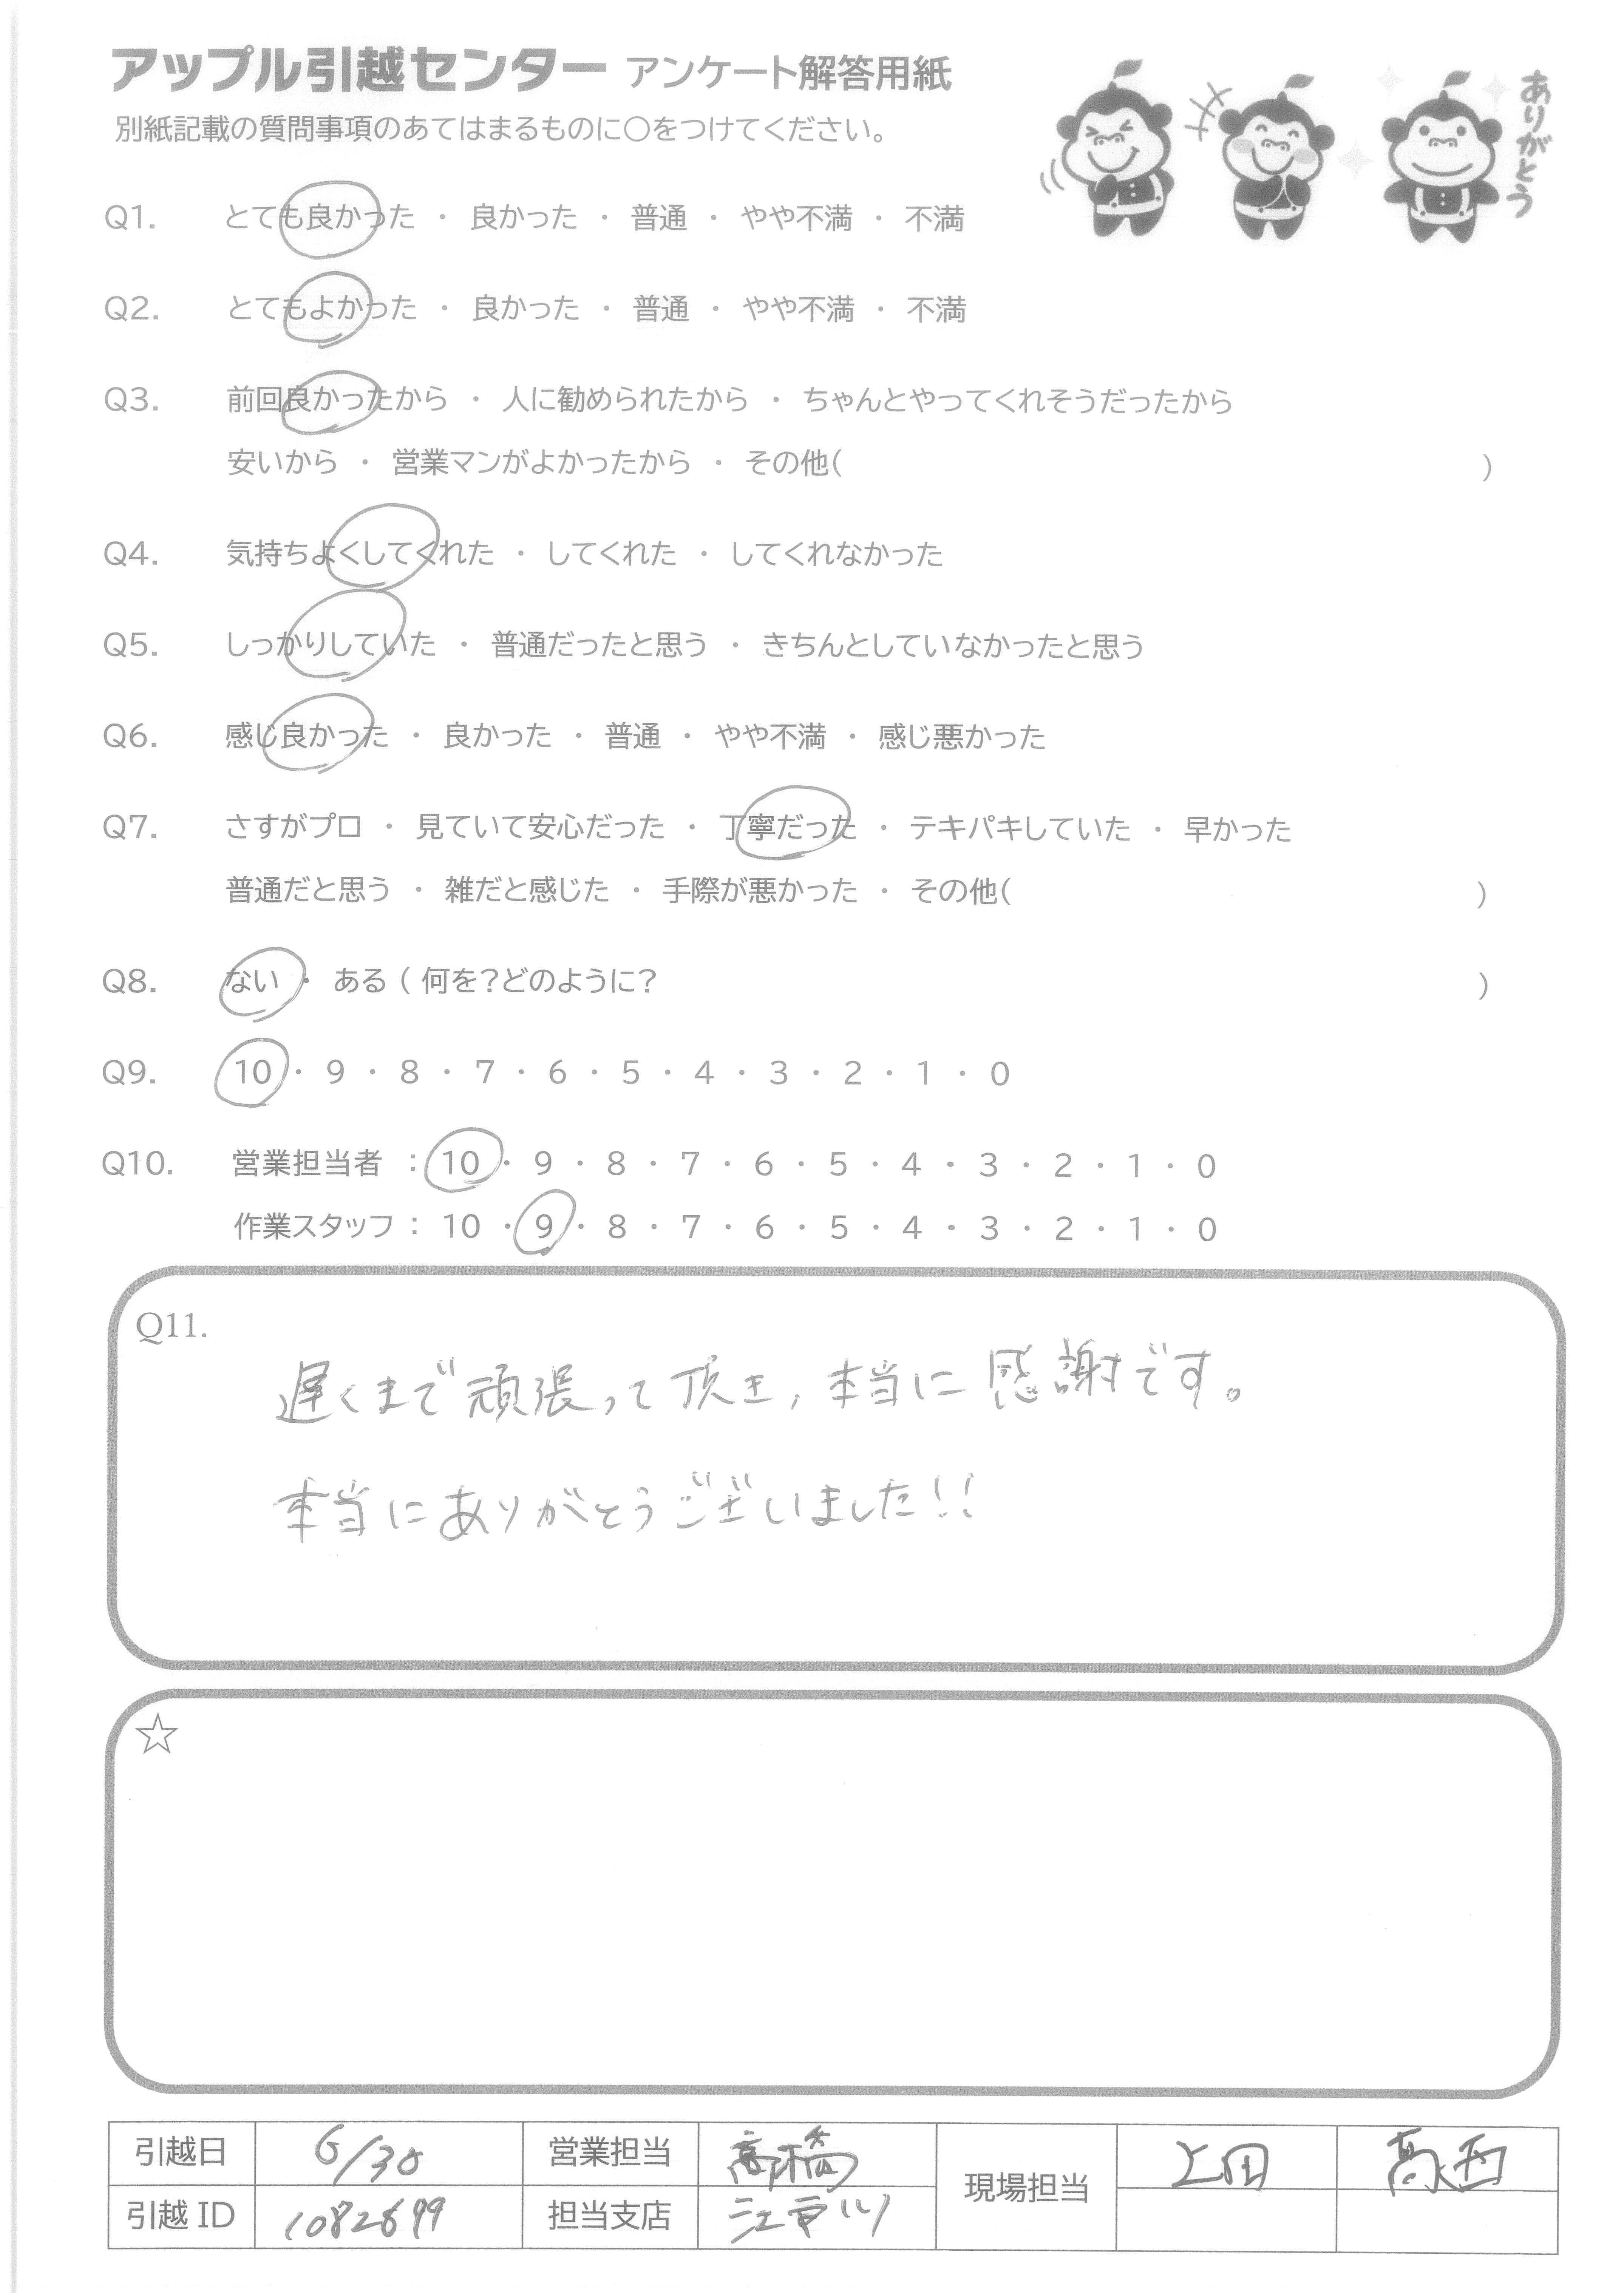 アップル引越センター アンケート解答用紙
別紙記載の質問事項のあてはまるものに○をつけてください。
ありがとう
Q1. とても良かった ・ 良かった ・ 普通 ・ やや不満 ・ 不満
Q2. とてもよかった ・ 良かった ・ 普通 ・ やや不満 ・ 不満
Q3. 前回良かったから ・ 人に勧められたから ・ ちゃんとやってくれそうだったから
安いから ・ 営業マンがよかったから ・ その他( )
Q4. 気持ちよくしてくれた ・ してくれた ・ してくれなかった
Q5. しっかりしていた ・ 普通だったと思う ・ きちんとしていなかったと思う
Q6. 感じ良かった ・ 良かった ・ 普通 ・ やや不満 ・ 感じ悪かった
Q7. さすがプロ ・ 見ていて安心だった ・ 丁寧だった ・ テキパキしていた ・ 早かった
普通だと思う ・ 雑だと感じた ・ 手際が悪かった ・ その他( )
Q8. ない ・ ある ( 何を?どのように? )
Q9. 10 ・ 9 ・ 8 ・ 7 ・ 6 ・ 5 ・ 4 ・ 3 ・ 2 ・ 1 ・ 0
Q10. 営業担当者 : 10 ・ 9 ・ 8 ・ 7 ・ 6 ・ 5 ・ 4 ・ 3 ・ 2 ・ 1 ・ 0
作業スタッフ : 10 ・ 9 ・ 8 ・ 7 ・ 6 ・ 5 ・ 4 ・ 3 ・ 2 ・ 1 ・ 0
Q11.
遅くまで頑張って頂き,本当に感謝です。
本当にありがとうございました!!
☆
引越日 6/30 営業担当 高橋 現場担当 上田 高西
引越ID 1082699 担当支店 江戸川